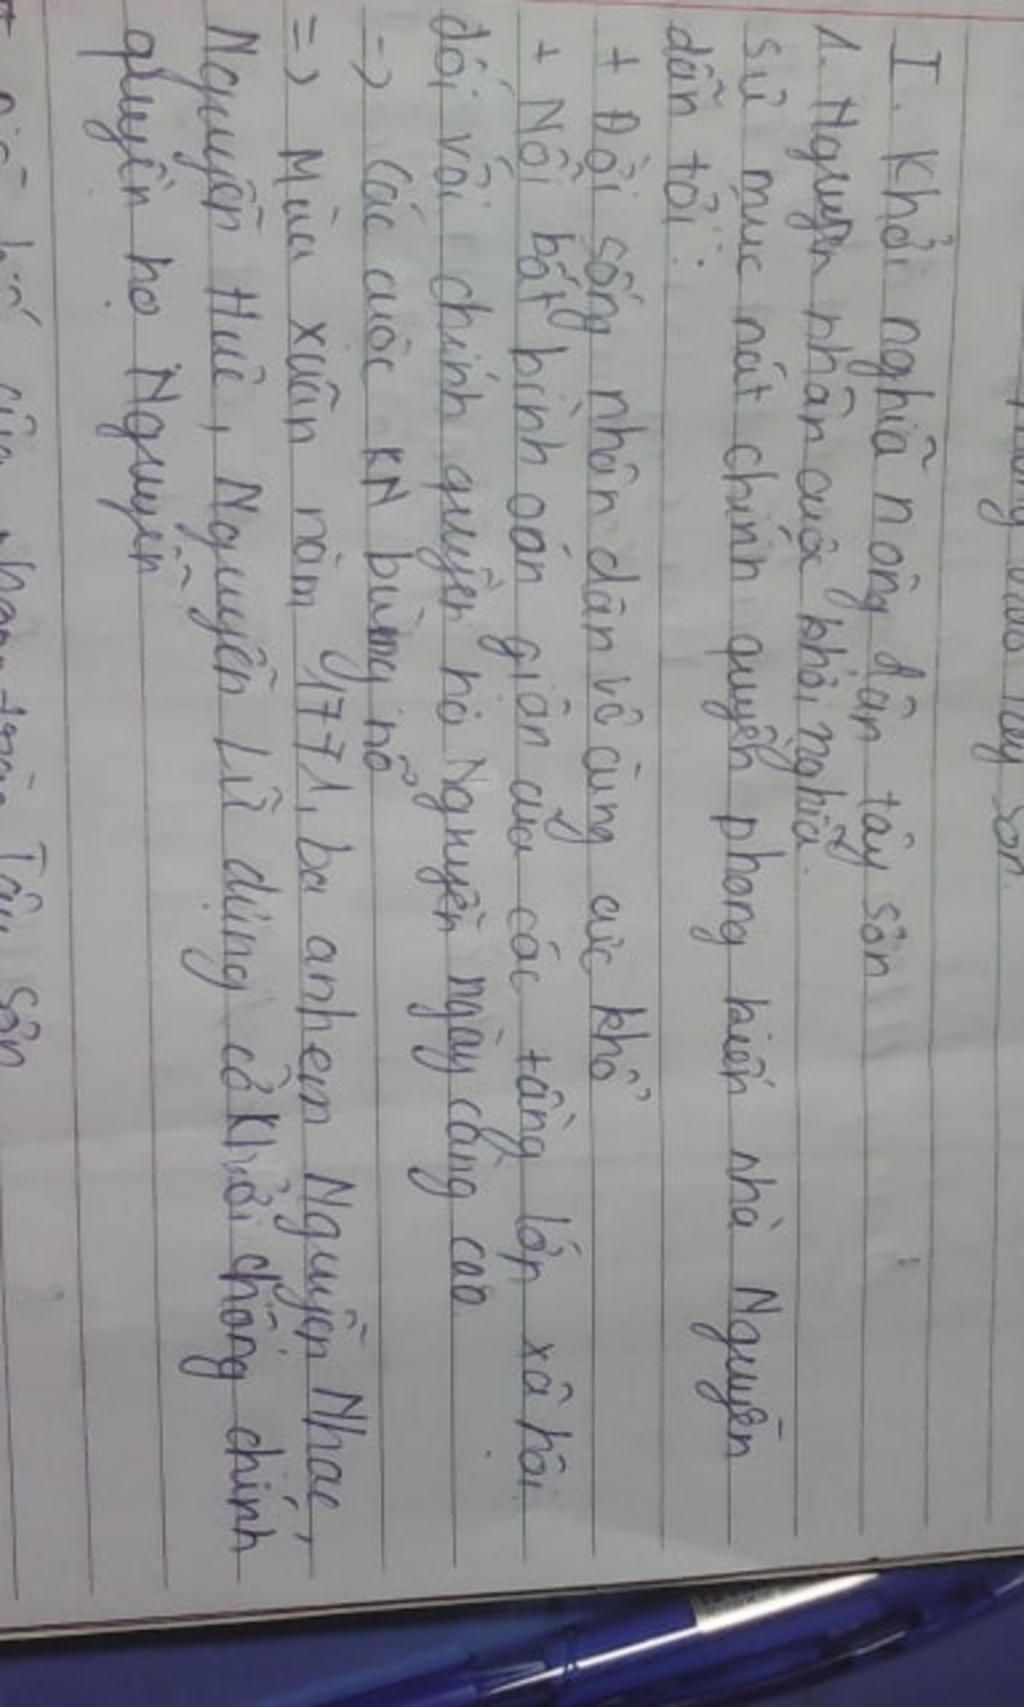 Tây Sơn.
I. Khởi nghĩa nông dân tây sơn
1. Nguyên nhân của khởi nghĩa.
sử mục nát chính quyền phong kiến nhà Nguyễn
dẫn tới:
+ Đời sống nhân dân vô cùng cực khổ
+ Nỗi bất bình oán giận của các tầng lớp xã hội
đối với chính quyền họ Nguyễn ngày càng cao.
-> Các cuộc KN bùng nổ
=> Mùa xuân năm 1771, ba anh em Nguyễn Nhạc,
Nguyễn Huệ, Nguyễn Lữ dựng cờ khởi chống chính
quyền họ Nguyễn
của phong trào Tây Sơn